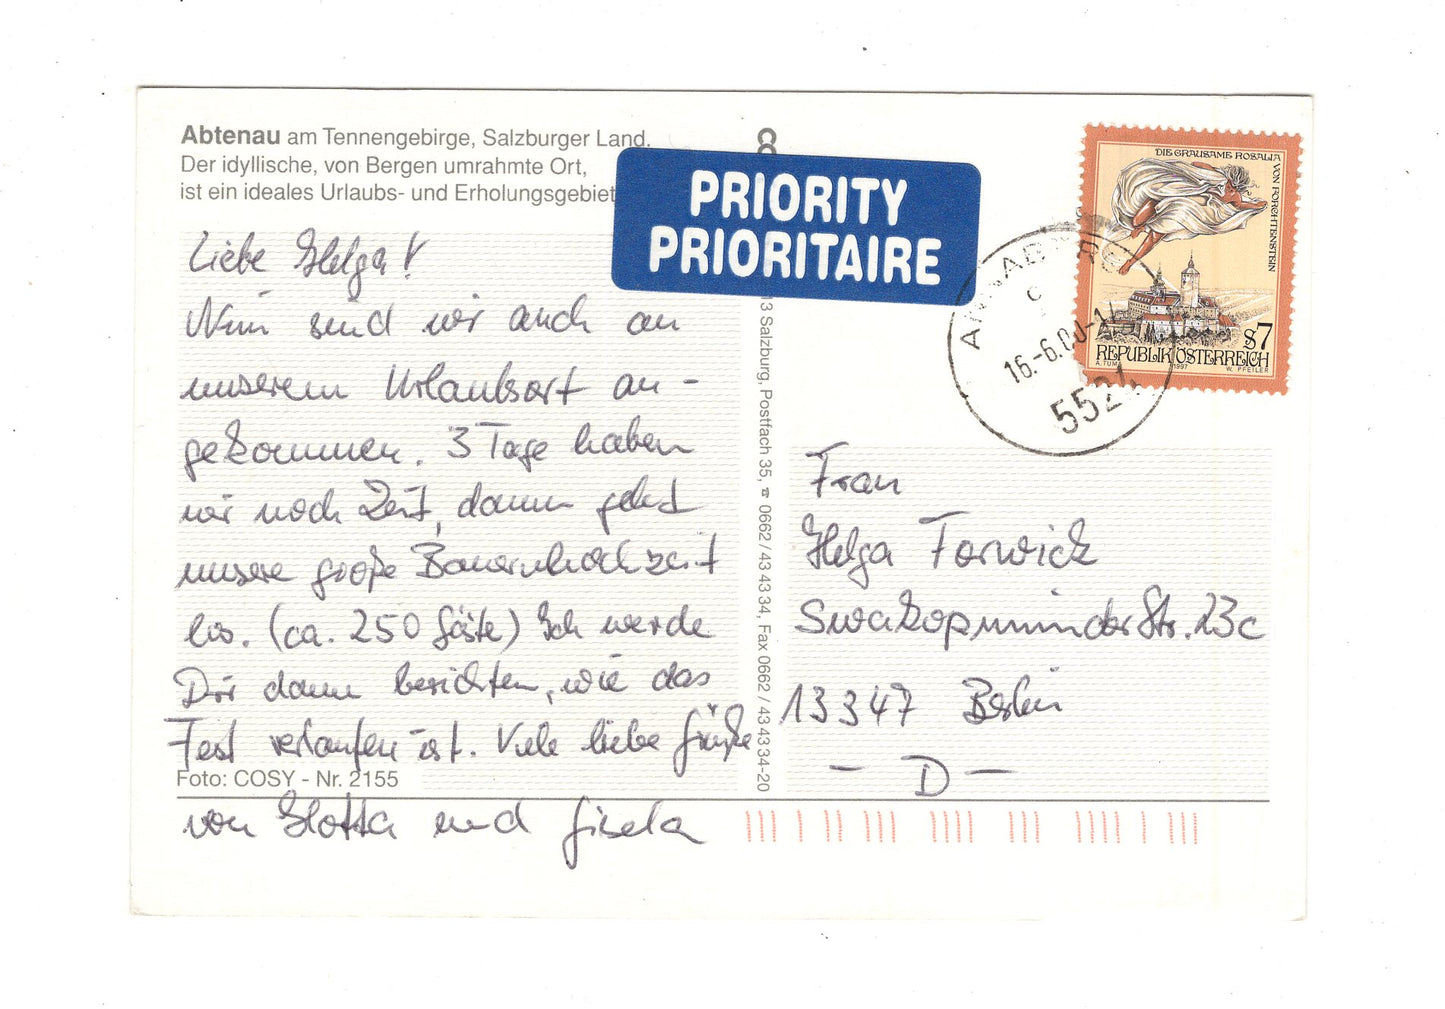 Abtenau am Tennengebirge, Salzburger Land.
Der idyllische, von Bergen umrahmte Ort,
ist ein ideales Urlaubs- und Erholungsgebiet
Liebe Helga!
Nun sind wir auch an
unserem Urlaubsort an-
gekommen. 3 Tage haben
wir noch Zeit, dann geht
unsere große Bauernhochzeit
los. (ca. 250 Gäste) Ich werde
Dir dann berichten, wie das
Fest verlaufen ist. Viele liebe Grüße
Foto: COSY - Nr. 2155
von und Gisela
PRIORITY
PRIORITAIRE
13 Salzburg, Postfach 35, ☎ 0662 / 43 43 34, Fax 0662 / 43 43 34-20
DIE GRAUSAME ROSALIA
VON FORCHTENSTEIN
S7
REPUBLIK ÖSTERREICH
A. TUMA 1997 W. PFEILER
16.-6.00-1
5521
Frau
Helga Torwick
Swakopmunder Str. 23c
13347 Berlin
- D -